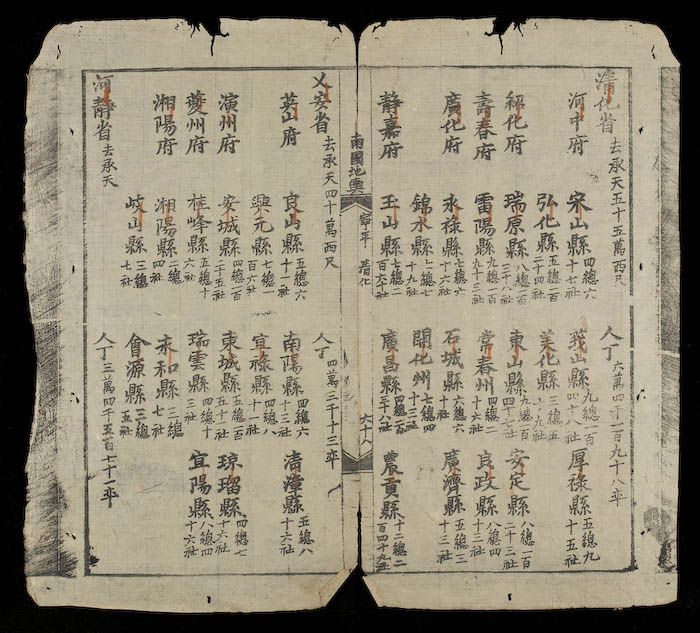 清化省 去承天五十五萬西尺
人丁 六萬四千二百九十八率
河中府
宋山縣 四總六十七社
莪山縣 九總一百四十八社
厚祿縣 五總九十五社
弘化縣 五總一百二十四社
美化縣 三總五十九社
紹化府
瑞原縣 八總一百三十八社
東山縣 九總一百四十七社
安定縣 八總一百二十三社
壽春府
雷陽縣 七總一百九十三社
常春州 四總二十六社
良政縣 四總四十六社
廣化府
永祿縣 七總六十七社
石城縣 六總六十社
廣濟縣 五總三十三社
錦水縣 十總七十九社
關化州 七總四十三社
靜嘉府
玉山縣 七總二百六十社
廣昌縣 六總一百三十八社
農貢縣 十二總二百四十九社
南國地輿
寧平 清化
六十八
乂安省 去承天四十萬西尺
人丁 四萬三千十三率
英山府
良山縣 五總六十一社
南陽縣 四總六十三社
清漳縣 五總八十六社
興元縣 七總一百六社
宜祿縣 四總八十一社
演州府
安城縣 四總一百二十五社
東城縣 五總一百五十二社
瓊瑠縣 四總七十六社
夔州府
桂峰縣 五總十六社
瑞雲縣 四總四十三社
宜陽縣 八總四十六社
湘陽府
湘陽縣 二總四社
永和縣 三總七社
岐山縣 三總七社
會源縣 三總五社
河靜省 去承天
人丁 三萬四千五百七十一率